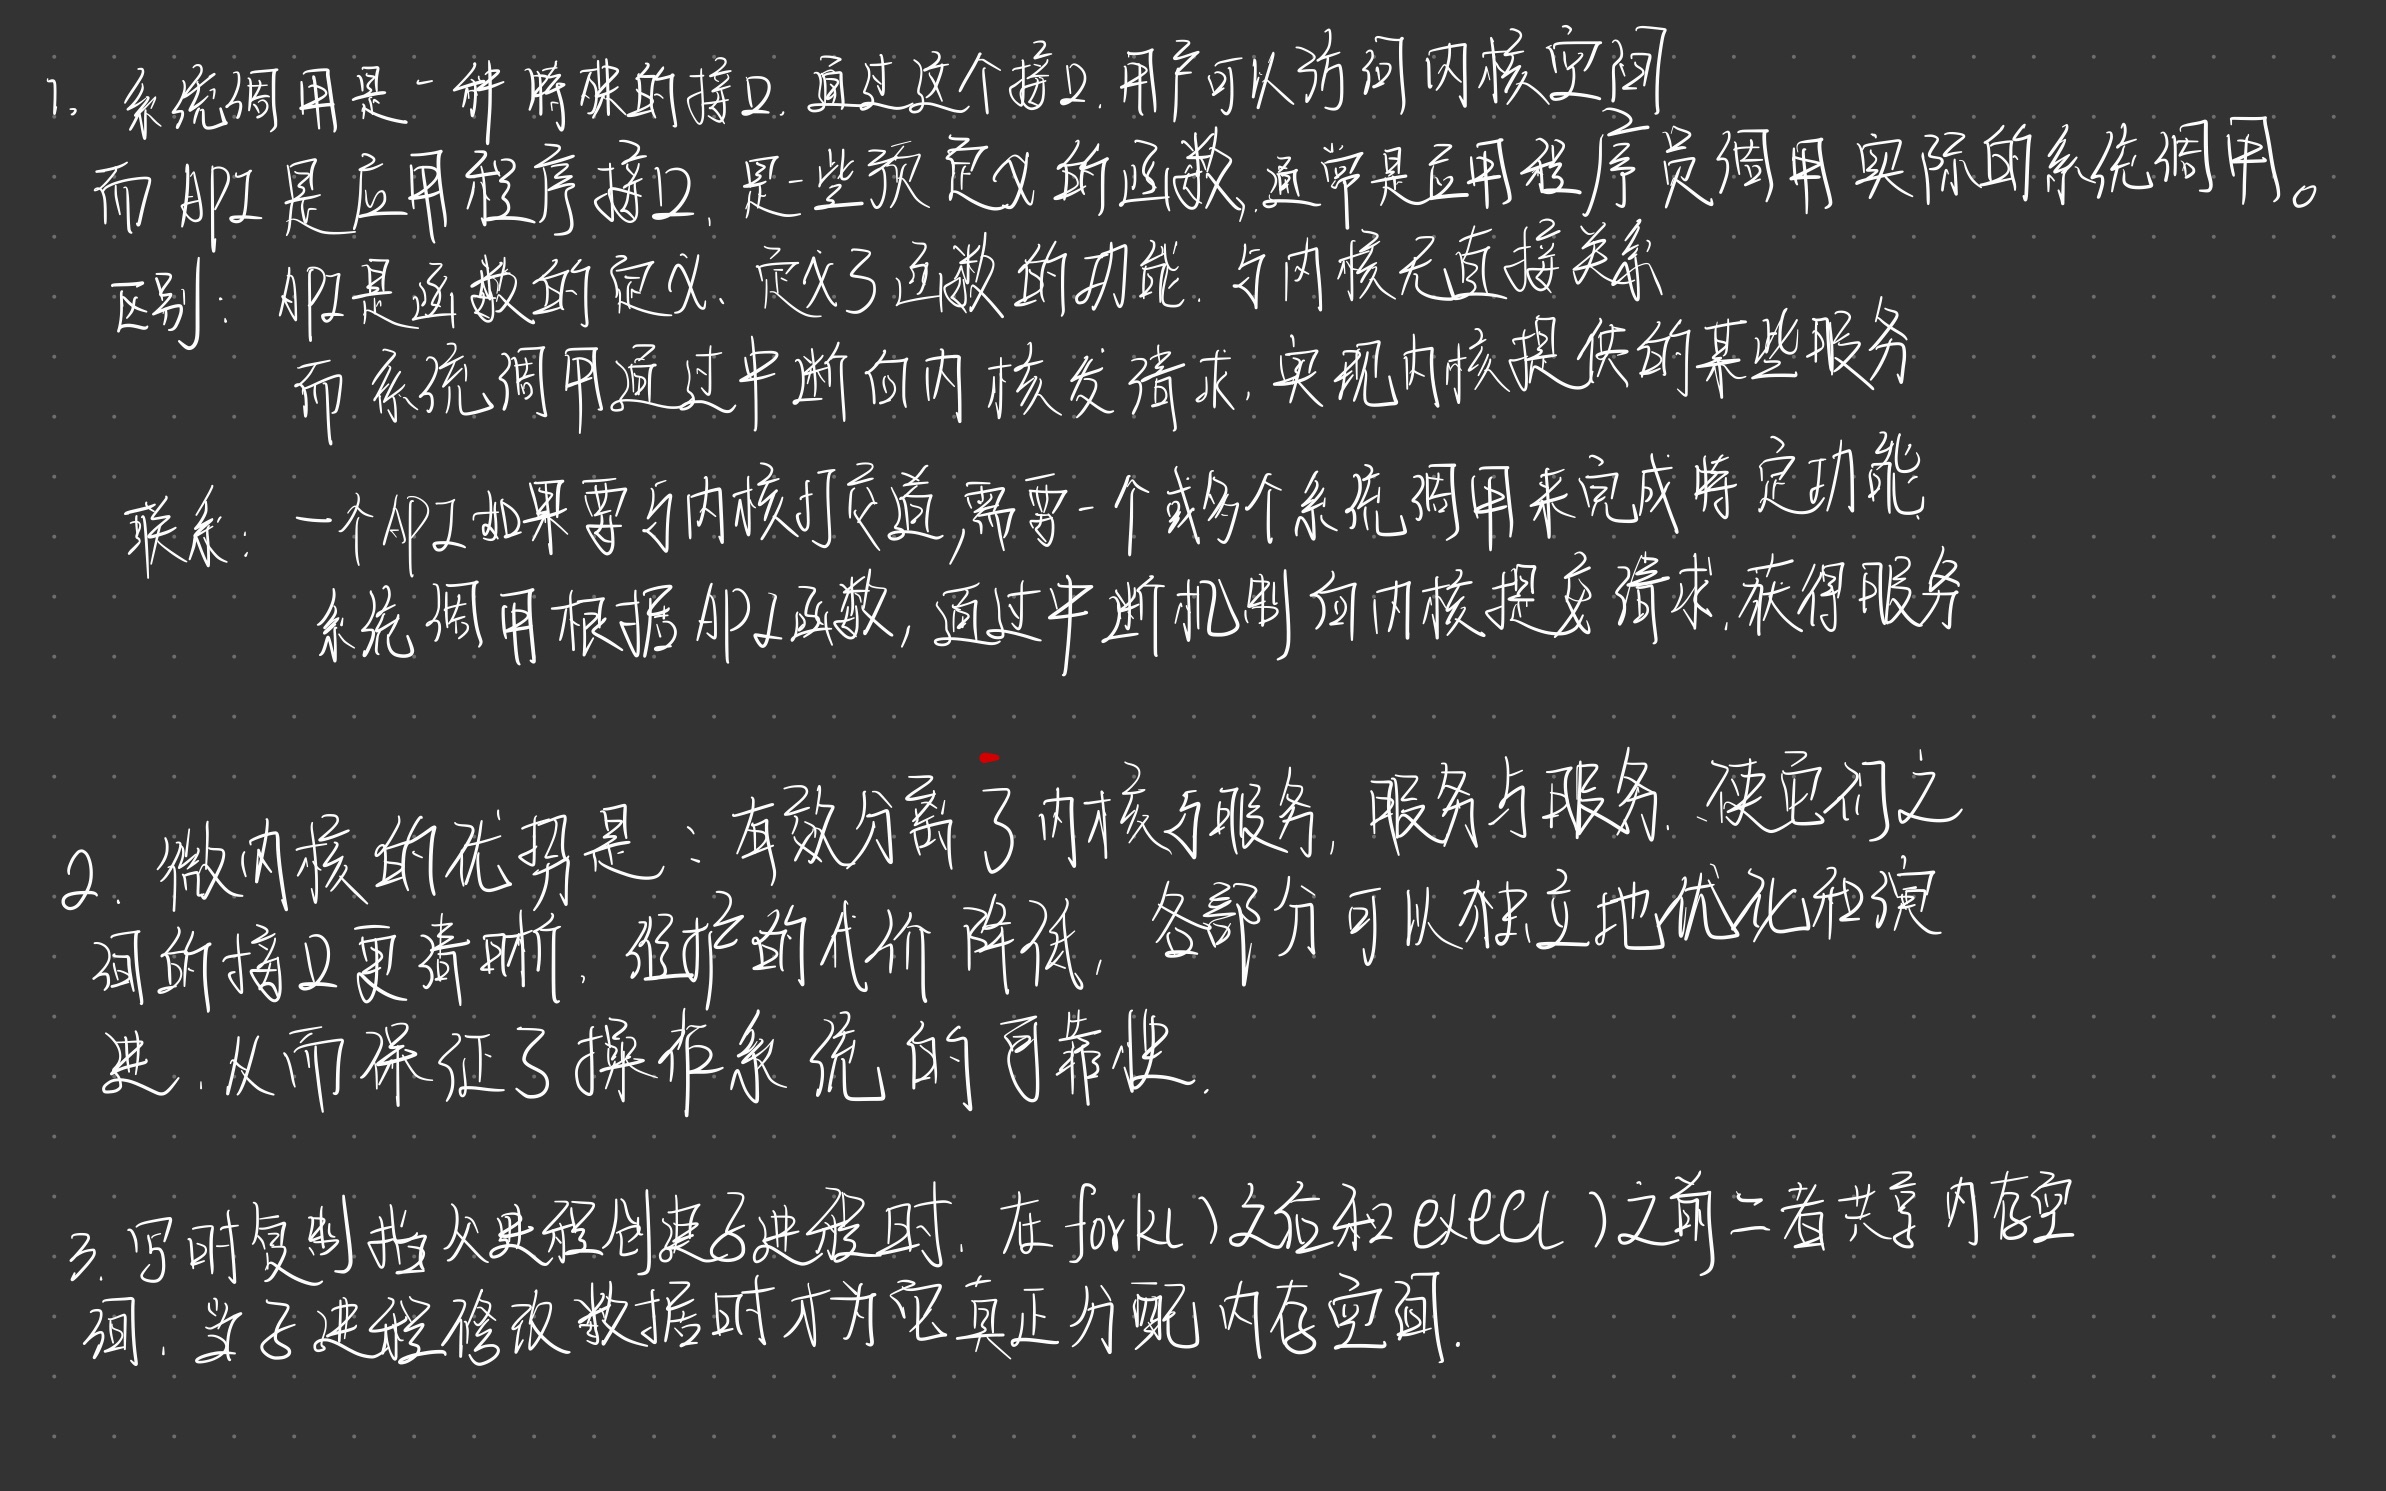 1. 系统调用是一种特殊的接口.通过这个接口.用户可以访问内核空间
而API是应用程序接口.是一些预定义的函数,通常是应用程序员调用实际的系统调用。
区别: API是函数的定义、定义了函数的功能.与内核无直接关系
而系统调用通过中断向内核发请求,实现内核提供的某些服务
联系: 一个API如果要与内核打交道,需要一个或多个系统调用来完成特定功能
系统调用根据API函数,通过中断机制向内核提交请求.获得服务
2. 微内核的优势是:有效分离了内核与服务,服务与服务.使它们之
间的接口更清晰.维护的代价降低,各部分可以独立地优化和演
进.从而保证了操作系统的可靠性.
3. 写时复制指父进程创建子进程时.在fork()之后和exec()之前二者共享内存空
间.当子进程修改数据时才为它真正分配内存空间.